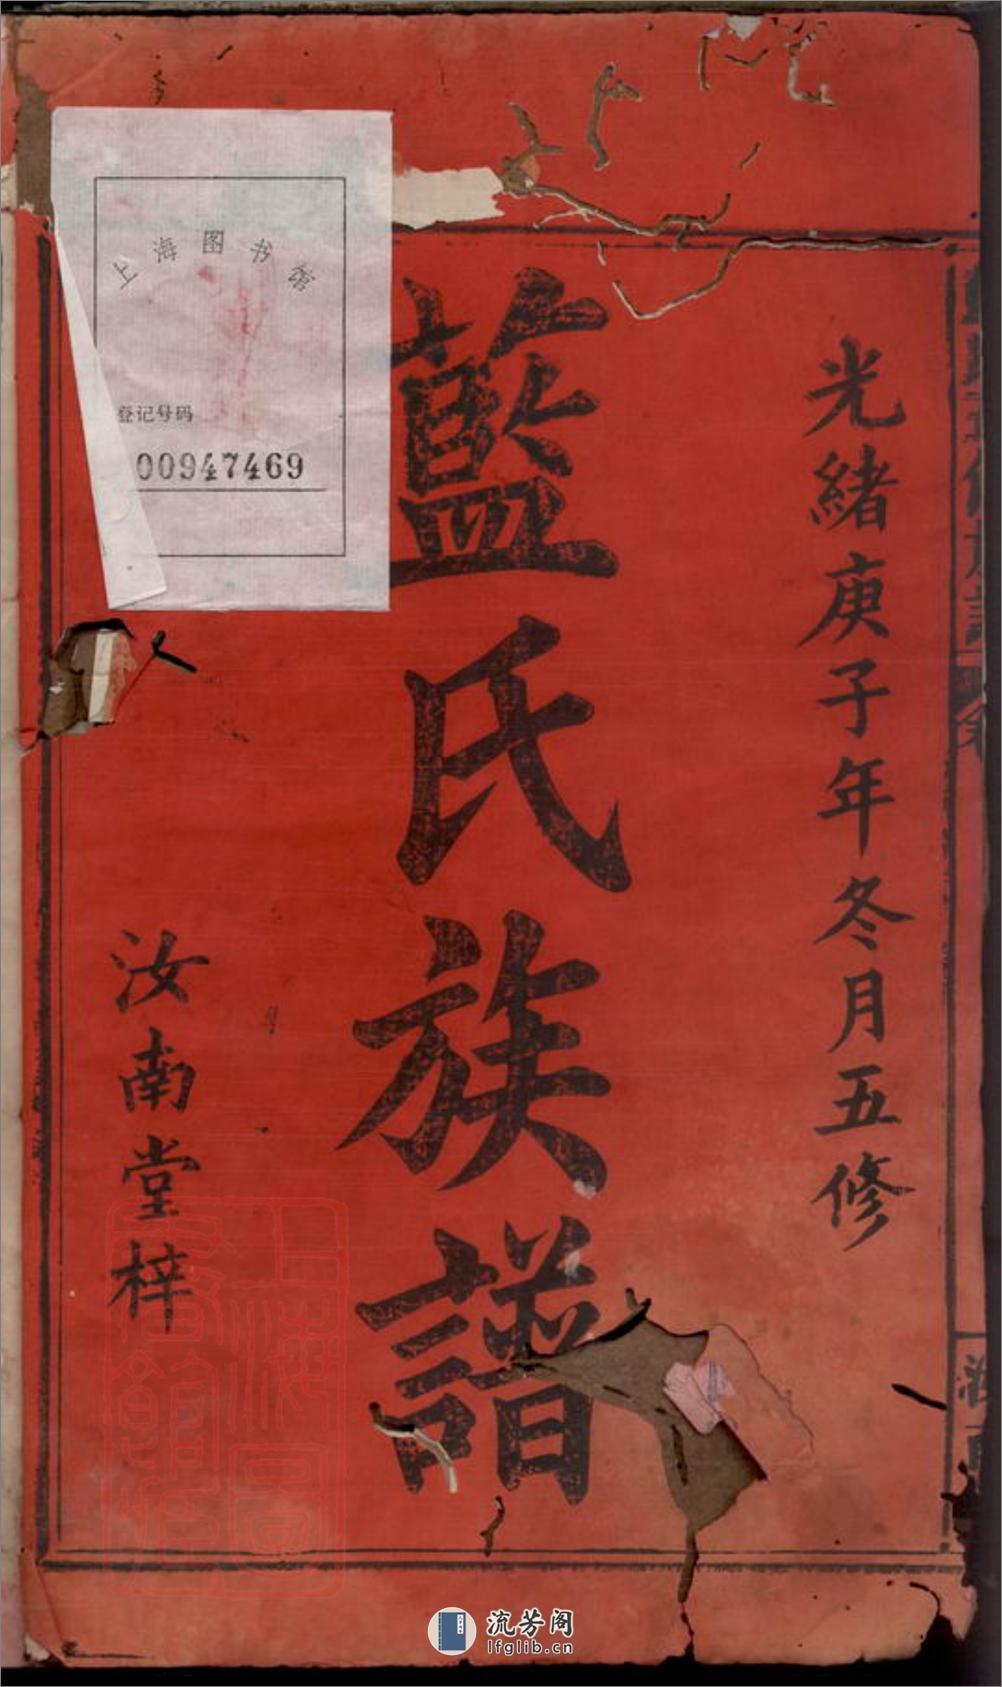 光緒庚子年冬月五修
藍氏族譜
汝南堂梓
上海图书馆
登记号码
00947469
流芳阁
lfglib.cn